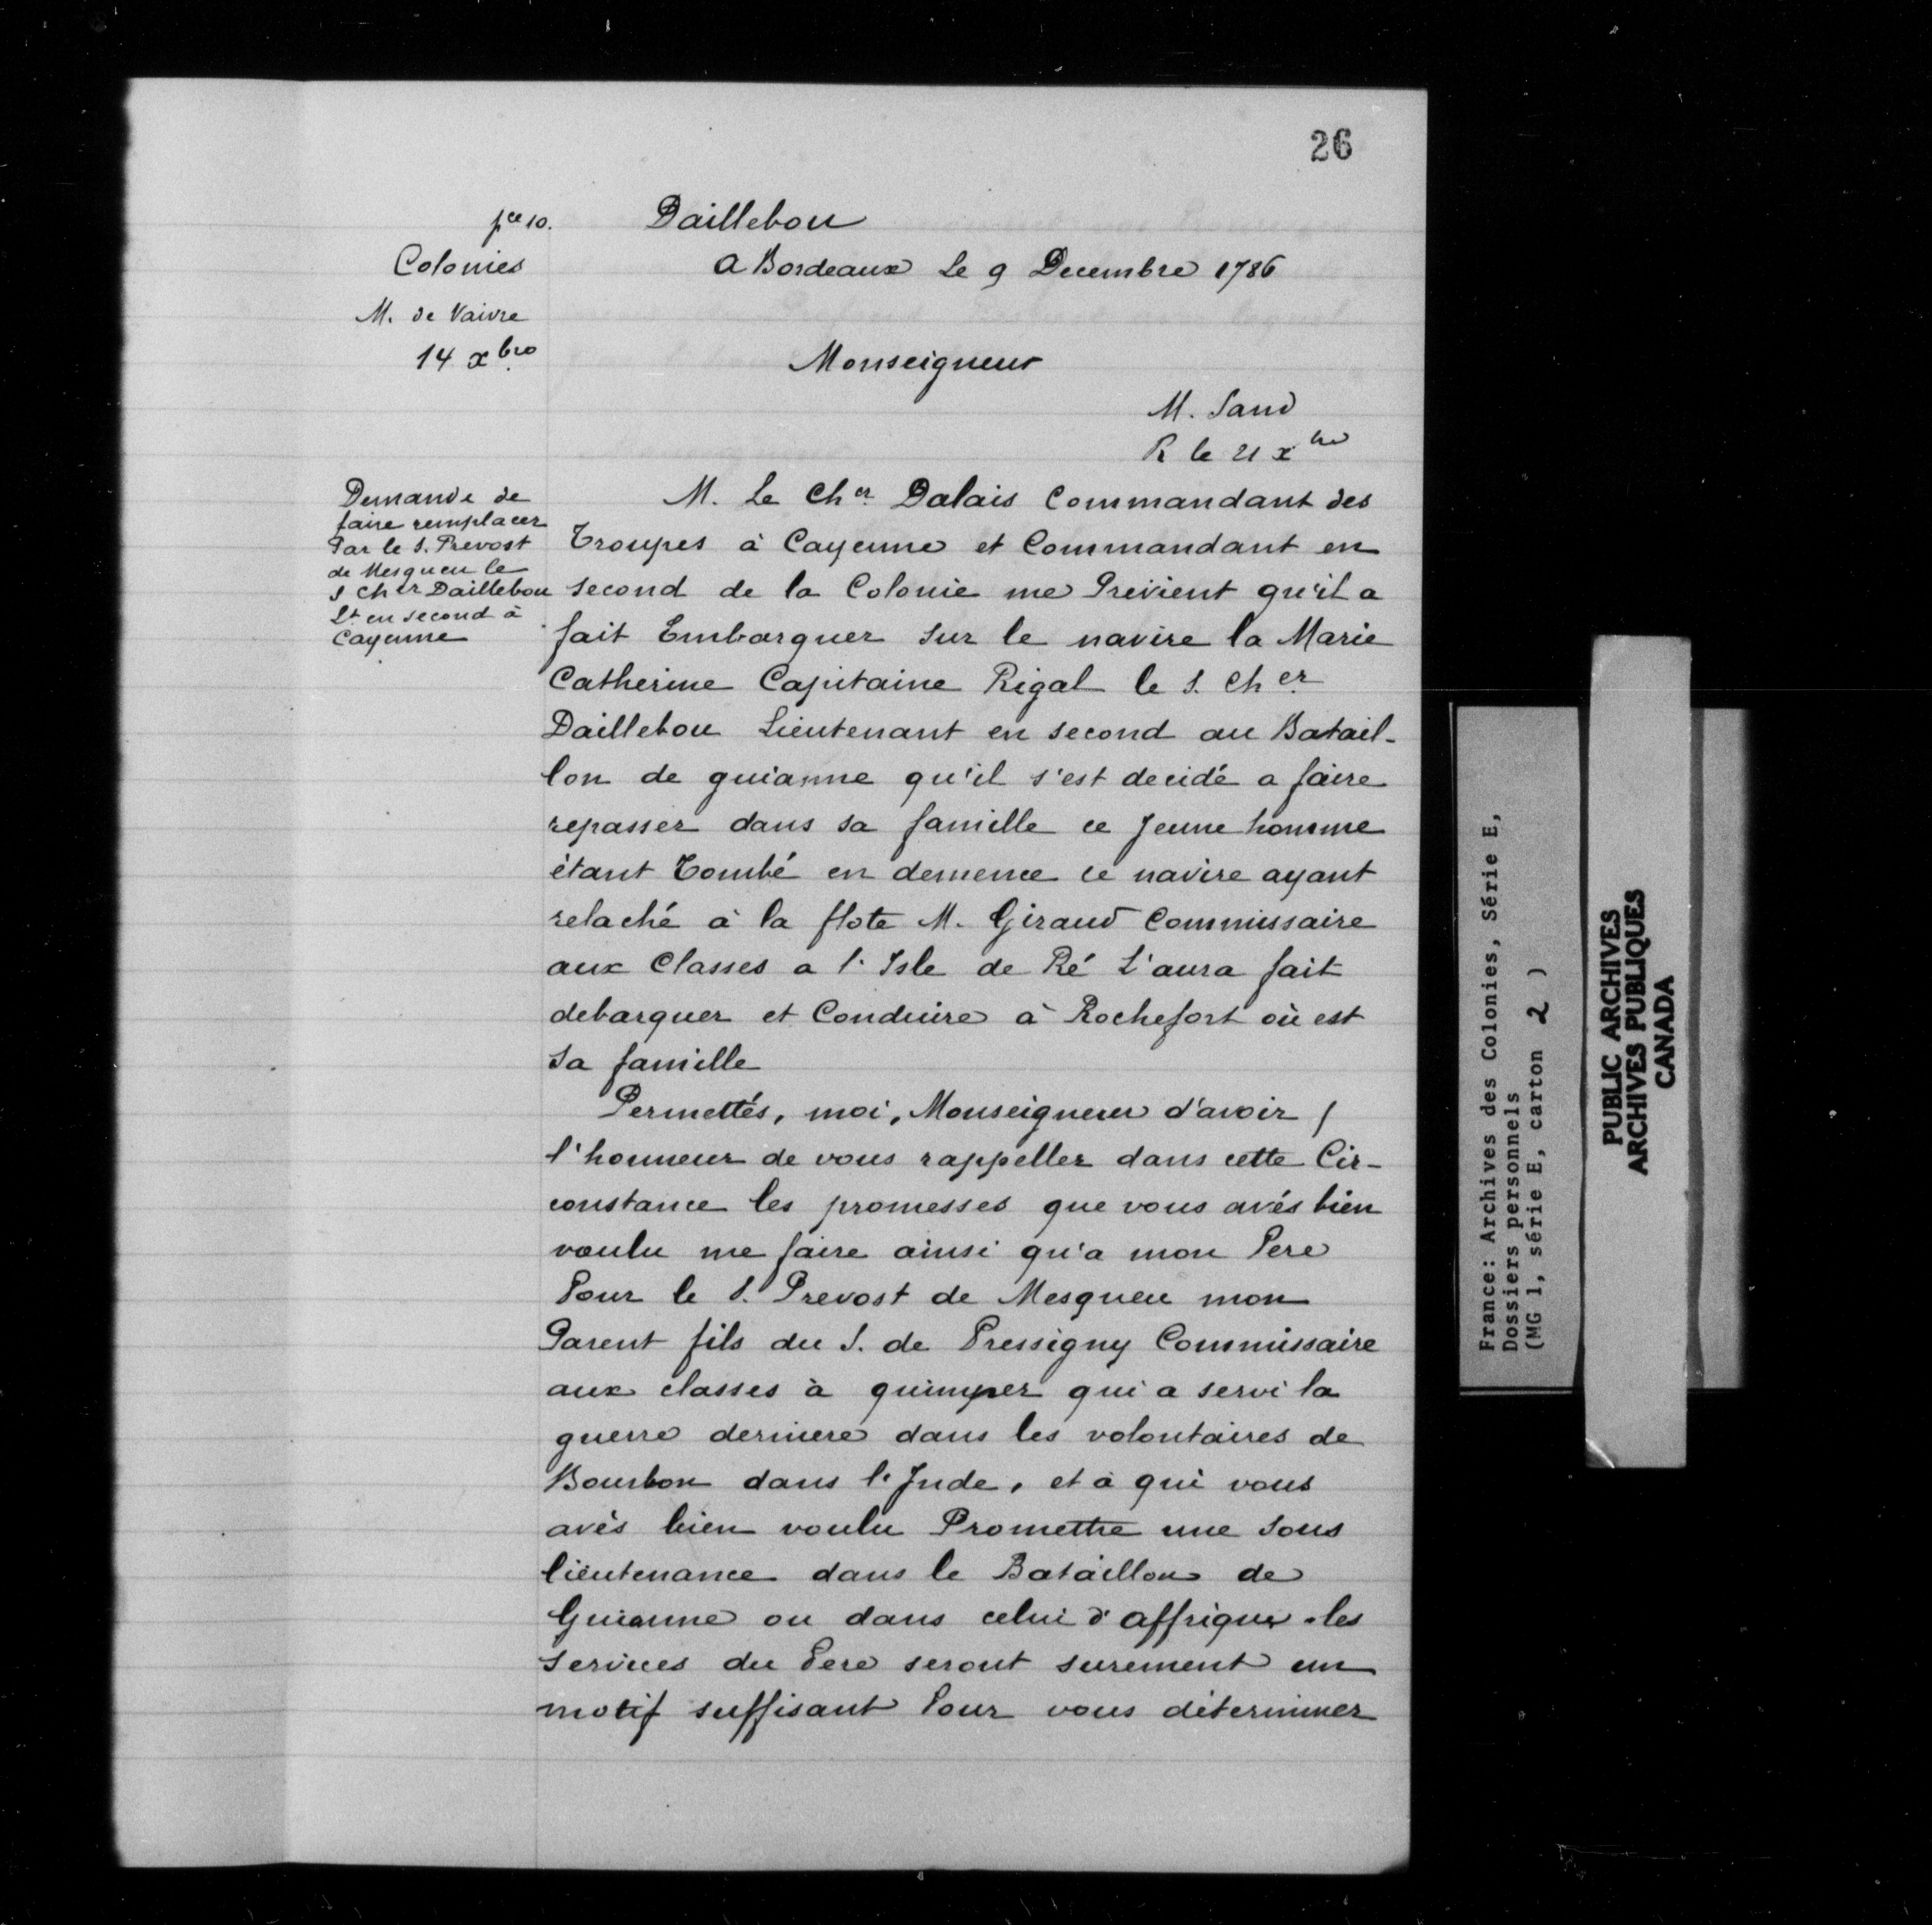 26
pce 10.
Daillebou
Colonies
A Bordeaux Le 9 Decembre 1786
M. de Vaivre
14 xbre
Monseigneur
M. Sand
R le 21 xbre
Demande de
faire remplacer
Par le S. Prevost
de Mesqueu le
S Cher Daillebou
Lt en second à
Cayenne
M. Le Cher Dalais Commandant des
Troupes à Cayenne et Commandant en
second de la Colonie me Prévient qu'il a
fait Embarquer sur le navire la Marie
Catherine Capitaine Rigal le S. Cher
Daillebou Lieutenant en second au Batail-
lon de guianne qu'il s'est decidé a faire
repasser dans sa famille ce Jeune homme
étant Tombé en demence ce navire ayant
relaché à la flote M. Giraud Commissaire
aux Classes a l'Isle de Ré L'aura fait
debarquer et Conduire à Rochefort où est
sa famille
Permettés, moi, Monseigneur d'avoir
l'honneur de vous rappeller dans cette Cir-
constance les promesses que vous avés bien
voulu me faire ainsi qu'a mon Pere
Pour le S. Prevost de Mesqueu mon
Parent fils du S. de Pressigny Commissaire
aux classes à quimper qui a servi la
guerre derniere dans les volontaires de
Bourbon dans l'Inde, et à qui vous
avés bien voulu Promettre une sous
lieutenance dans le Bataillon de
Guianne ou dans celui d'affrique les
services du Pere seront surement un
motif suffisant Pour vous déterminer
France: Archives des Colonies, Série E,
Dossiers personnels
(MG 1, série E, carton 2 )
PUBLIC ARCHIVES
ARCHIVES PUBLIQUES
CANADA